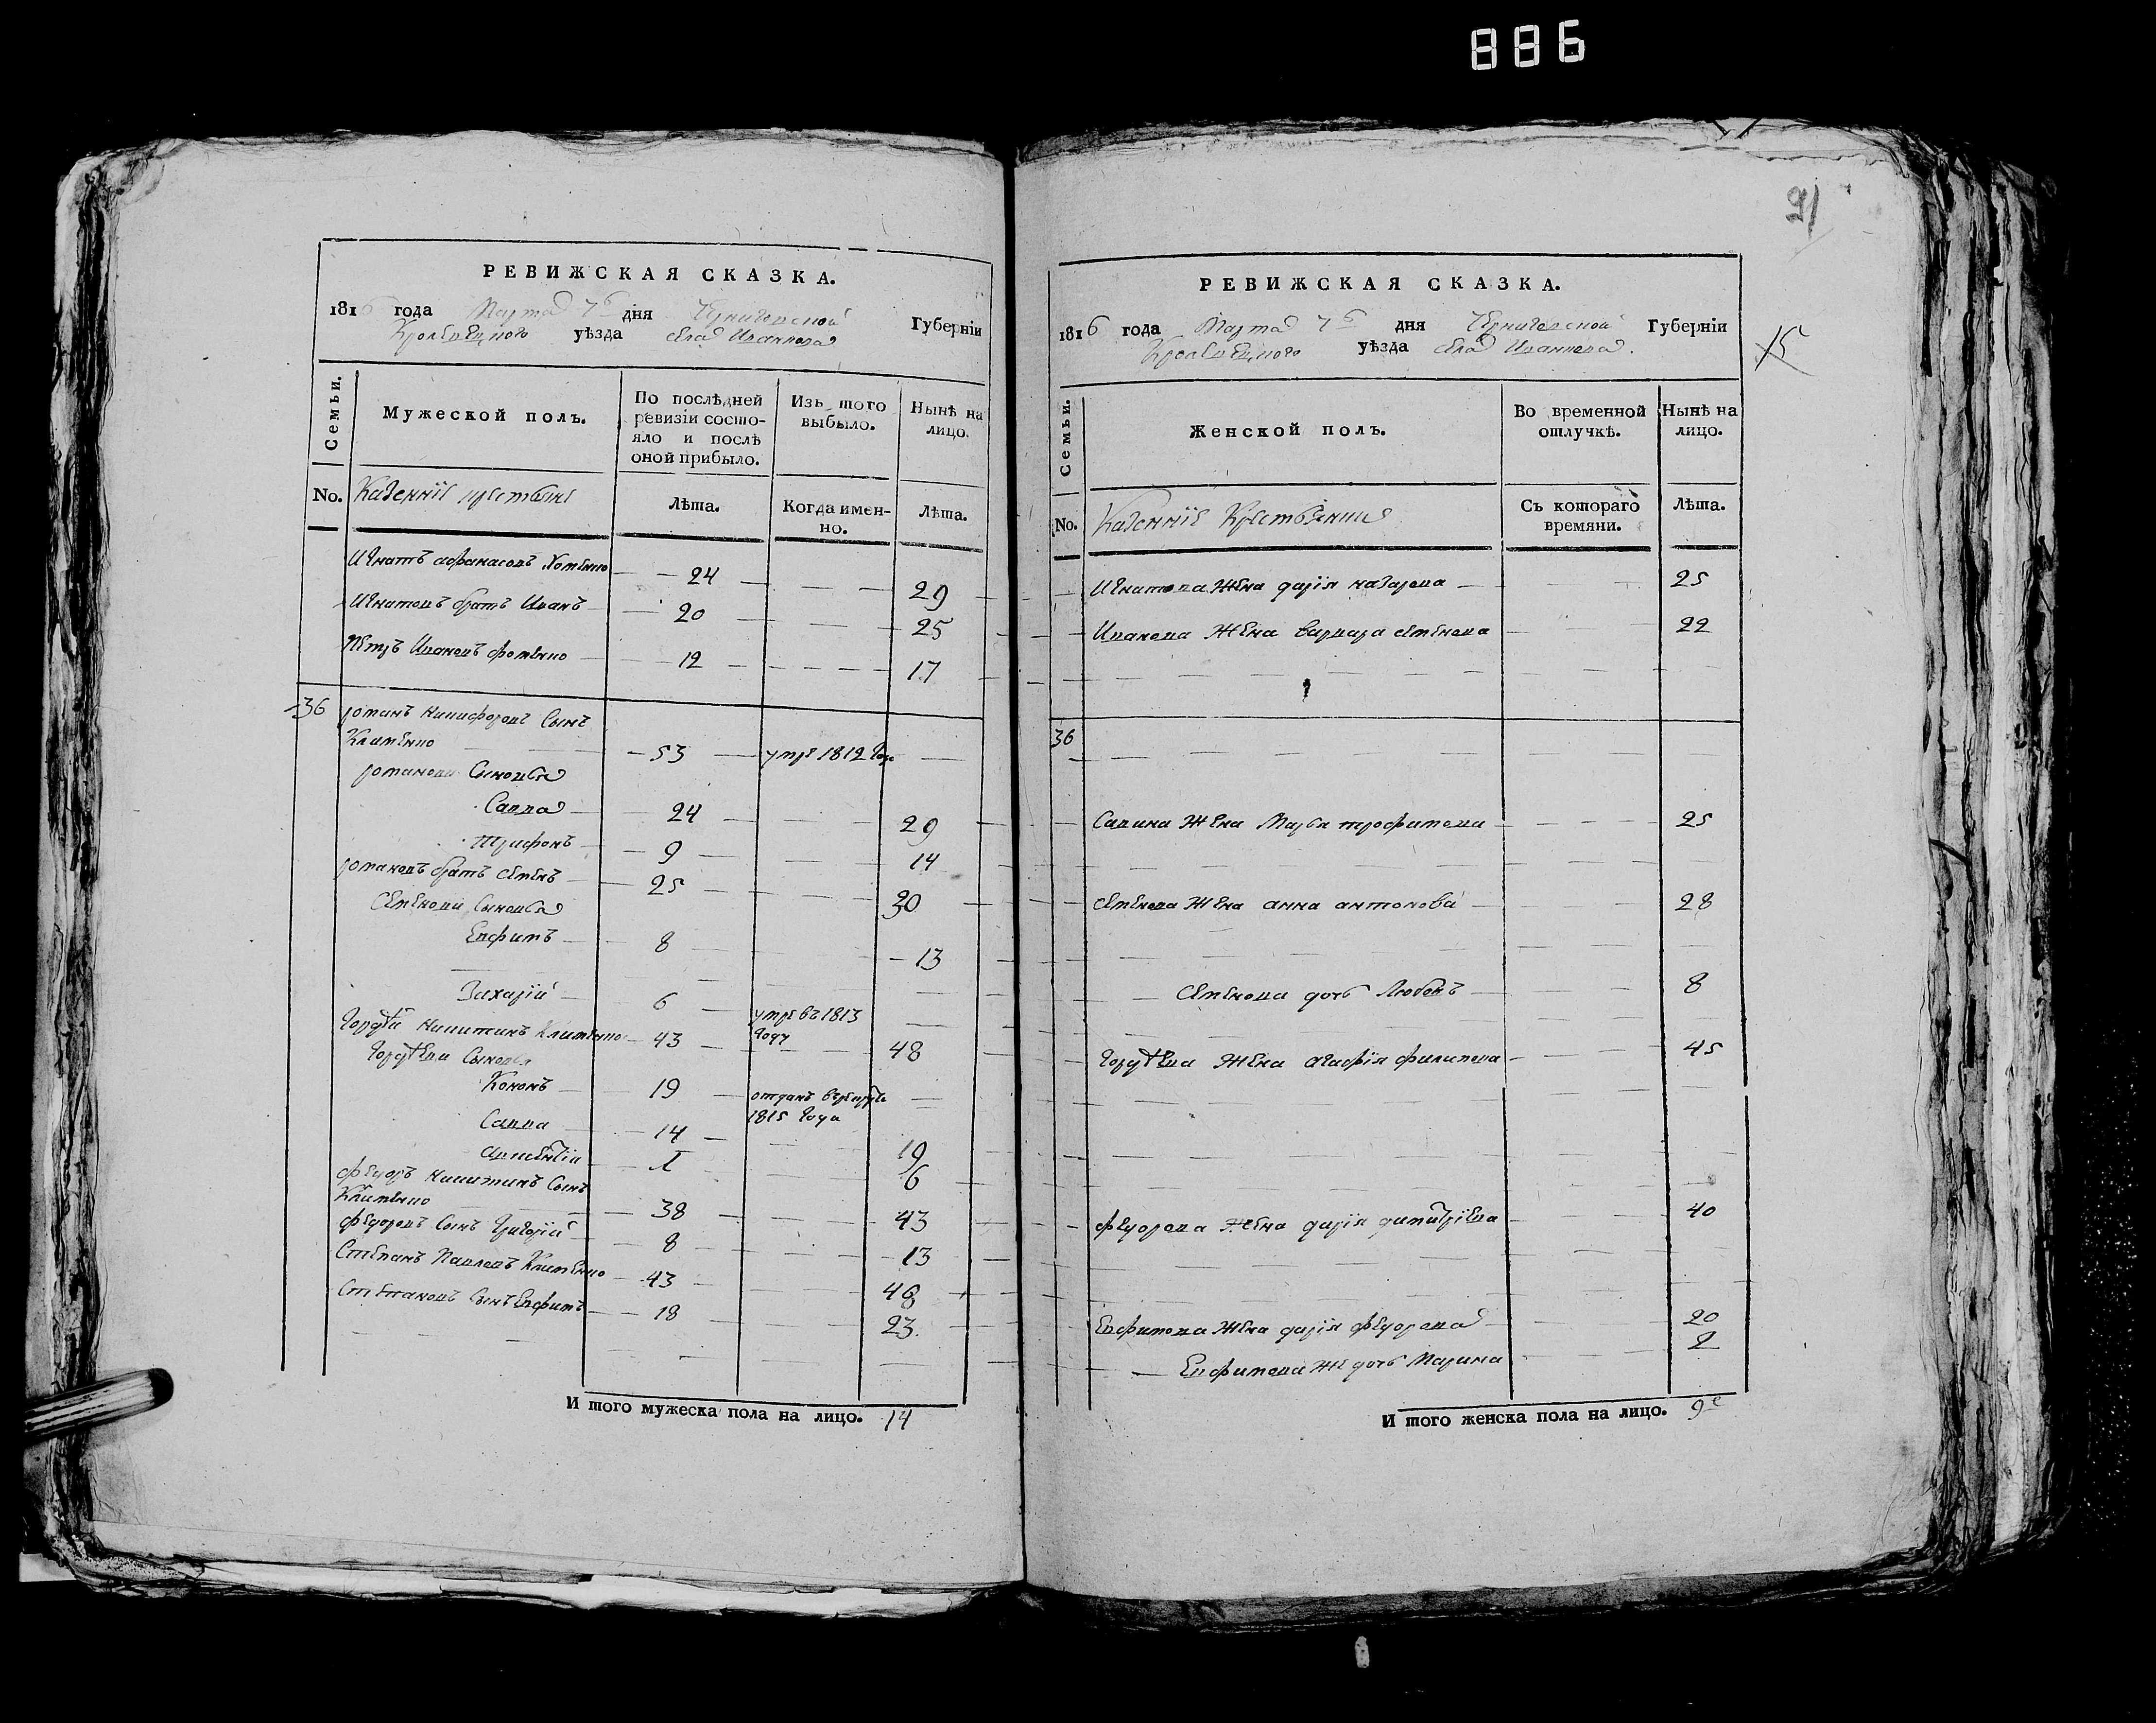 886
91
РЕВИЖСКАЯ СКАЗКА.
1816 года Марта 7 дня Черниговской Губерніи
Кролевецкого уѣзда села Иванкова
Семьи.
Мужеской полъ.
По послѣдней ревизіи состояло и послѣ оной прибыло.
Изъ того выбыло.
Нынѣ на лицо.
No. Казенніе крестьяне
Лѣта.
Когда именно.
Лѣта.
Игнатъ афанасовъ Хоменко 24 29
Игнатовъ братъ Иванъ 20 25
Петръ Ивановъ фоменко 12 17
36 романъ никифоровъ Сынъ
Клименко 53 умре 1812 Года
романови Сыновья
Савва 24 29
Трифонъ 9 14
романовъ братъ семенъ 25 30
Семенови Сыновья
Евфимъ 8 13
Захарій 6 умре въ 1813 Году
Гордѣй никитинъ Клименко 43 48
Гордѣеви Сыновья
Кононъ 19 отданъ врекруты 1815 Года
Савва 14 19
1 6
федоръ никитинъ Сынъ
Клименко 38 43
федоровъ Сынъ Григорій 8 13
Степанъ Павловъ Клименко 43 48
Степановъ Сынъ Евфимъ 18 23
И того мужеска пола на лицо. 14
РЕВИЖСКАЯ СКАЗКА.
1816 года Марта 7 дня Черниговской Губерніи
Кролевецкого уѣзда села Иванкова.
15
Семьи.
Женской полъ.
Во временной отлучкѣ.
Нынѣ на лицо.
No. Казенніе Крестьянки
Съ котораго времяни.
Лѣта.
Игнатова Жена дарія назарова 25
Иванова Жена варвара семенова 22
36
Савина Жена Марья трофимова 25
семенова Жена анна антонова 28
Семенова дочь Любовъ 8
Гордѣева Жена агафія филипова 45
федорова Жена дарія димитріева 40
Евфимова Жена дарія федорова 20
Евфимова Же дочь Марина 2
И того женска пола на лицо. 9